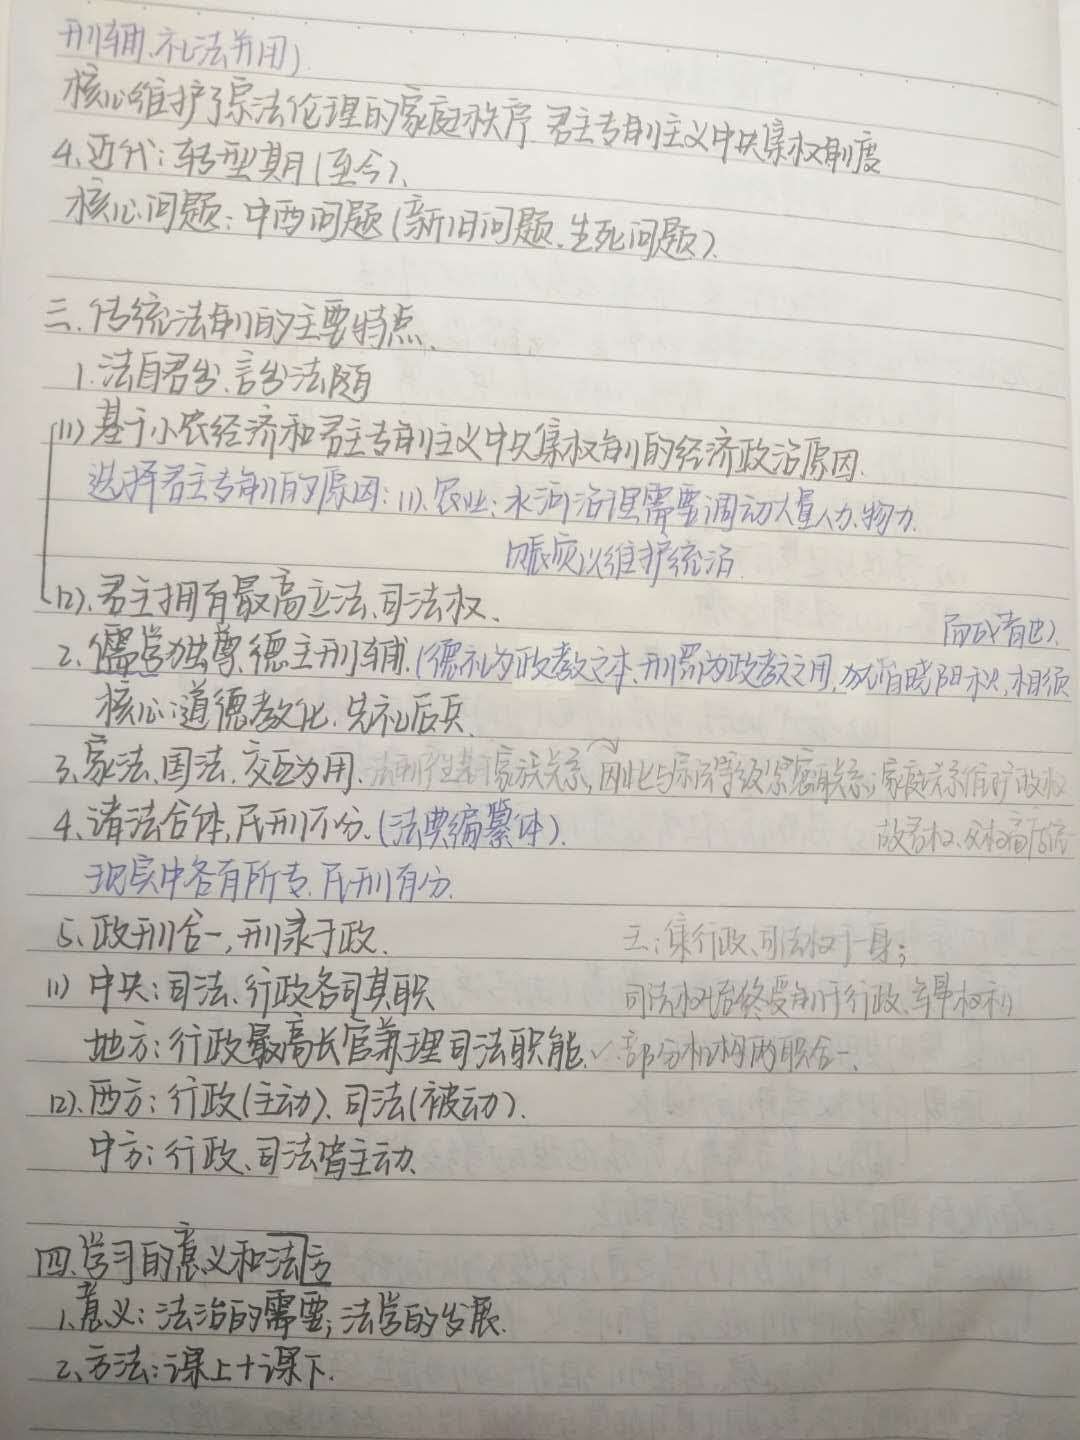 刑辅、礼法并用）
核心维护了宗法伦理的家庭秩序 君主专制主义中央集权制度
4、近代：转型期（至今）、
核心问题：中西问题（新旧问题、生死问题）、
三、传统法制的主要特点、
1、法自君出、言出法随
(1)基于小农经济和君主专制主义中央集权制的经济政治原因、
选择君主专制的原因：(1)、农业：水河治理需要调动大量人力、物力、
赈灾以维护统治、
(2)、君主拥有最高立法、司法权、
而成者也）、
2、儒学独尊、德主刑辅、（德礼为政教之本、刑罚为政教之用、犹昏晓阳秋、相须
核心：道德教化、先礼后兵、
3、家法、国法、交互为用、法制 家族关系，因此与宗法等级紧密联系；家庭关系维护政权
4、诸法合体，民刑不分、（法典编纂体）、
故君权、父权
现实中各有所专、民刑有分、
5、政刑合一，刑隶于政、 王：集行政、司法权于一身；
(1) 中央：司法、行政各司其职 司法权始终受制于行政、 权利
地方：行政最高长官兼理司法职能、✓部分机构两职合一、
(2)、西方：行政(主动)、司法(被动)、
中方：行政、司法皆主动、
四、学习的意义和法方
1、意义：法治的需要；法学的发展、
2、方法：课上+课下、